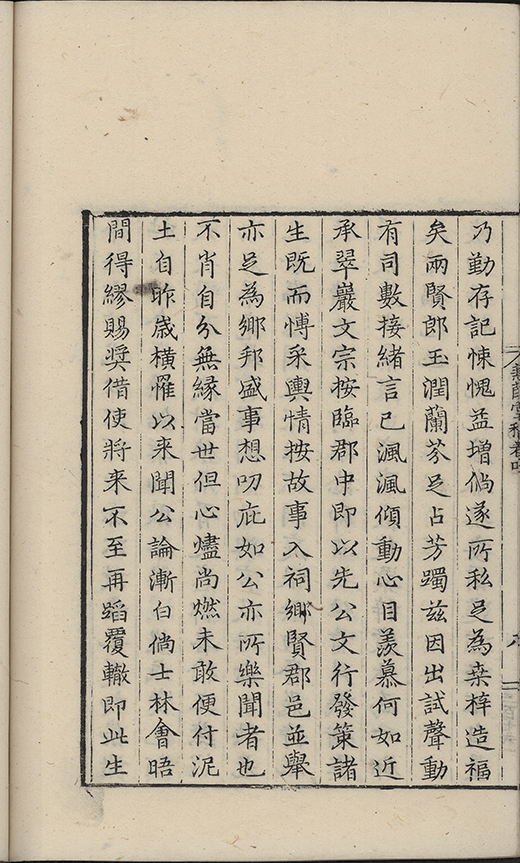 乃勤存記悚愧益增倘遂所私足為桒梓造福
矣兩賢郎玉潤蘭芬足占芳躅茲因出試聲動
有司數接緒言已渢渢傾動心目羨慕何如近
承翠巖文宗按臨郡中即以先公文行發策諸
生既而愽采輿情按故事入祠鄉賢郡邑並舉
亦足為鄉邦盛事想叨庇如公亦所樂聞者也
不肖自分無緣當世但心燼尚燃未敢便付泥
土自昨嵗橫懼以来聞公論漸白倘士林會晤
間得繆賜奬借使將来不至再蹈覆轍即此生